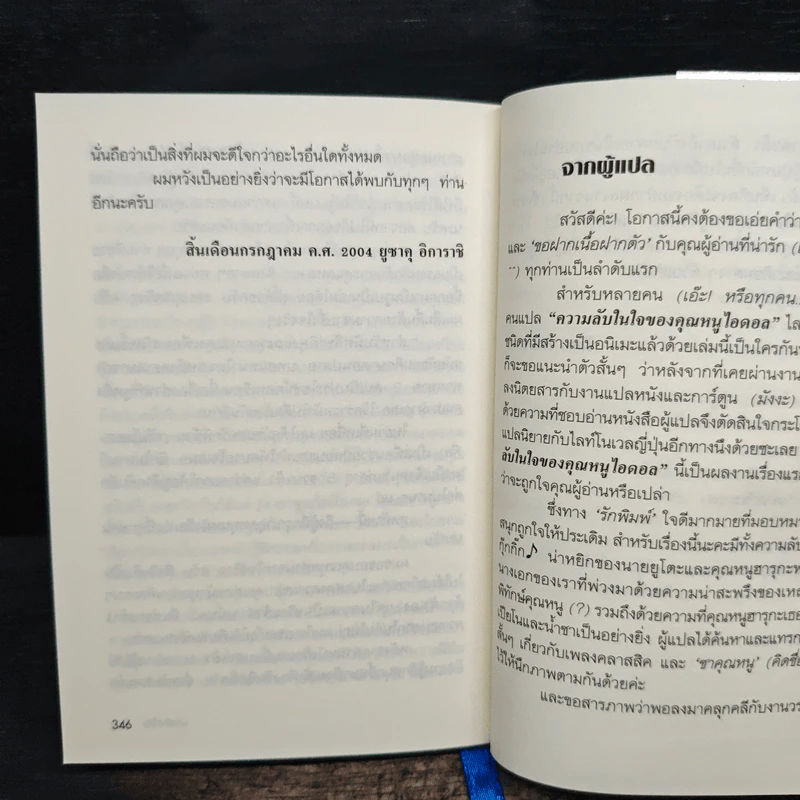 นั่นถือว่าเป็นสิ่งที่ผมจะดีใจกว่าอะไรอื่นใดทั้งหมด
ผมหวังเป็นอย่างยิ่งว่าจะมีโอกาสได้พบกับทุกๆ ท่าน
อีกนะครับ
สิ้นเดือนกรกฎาคม ค.ศ. 2004 ยูซาคุ อิการาชิ
346
จากผู้แปล
สวัสดีค่ะ! โอกาสนี้คงต้องขอเอ่ยคำว่า
และ ‘ขอฝากเนื้อฝากตัว’ กับคุณผู้อ่านที่น่ารัก
ทุกท่านเป็นลำดับแรก
สำหรับหลายคน (เอ๊ะ! หรือทุกคน...
คนแปล “ความลับในใจของคุณหนูไอดอล” ไล
ชนิดที่มีสร้างเป็นอนิเมะแล้วด้วยเล่มนี้เป็นใครกัน
ก็จะขอแนะนำตัวสั้นๆ ว่าหลังจากที่เคยผ่านงาน
ลงนิตยสารกับงานแปลหนังและการ์ตูน (มังงะ)
ด้วยความที่ชอบอ่านหนังสือผู้แปลจึงตัดสินใจกระโ
แปลนิยายกับไลท์โนเวลญี่ปุ่นอีกทางนึงด้วยซะเลย
ลับในใจของคุณหนูไอดอล” นี้เป็นผลงานเรื่องแร
ว่าจะถูกใจคุณผู้อ่านหรือเปล่า
ซึ่งทาง ‘รักพิมพ์’ ใจดีมากมายที่มอบหมา
สนุกถูกใจให้ประเดิม สำหรับเรื่องนี้นะคะมีทั้งความลับ
กุ๊กกิ๊ก♪ น่าหยิกของนายยูโตะและคุณหนูฮารุกะ
นางเอกของเราที่พ่วงมาด้วยความน่าสะพรึงของเห
พิทักษ์คุณหนู (?) รวมถึงด้วยความที่คุณหนูฮารุกะเธอ
เปียโนและน้ำชาเป็นอย่างยิ่ง ผู้แปลได้ค้นหาและแทรก
สั้นๆ เกี่ยวกับเพลงคลาสสิค และ ‘ชาคุณหนู’ (คิดชื่อ
ไว้ให้นึกภาพตามกันด้วยค่ะ
และขอสารภาพว่าพอลงมาคลุกคลีกับงานวร